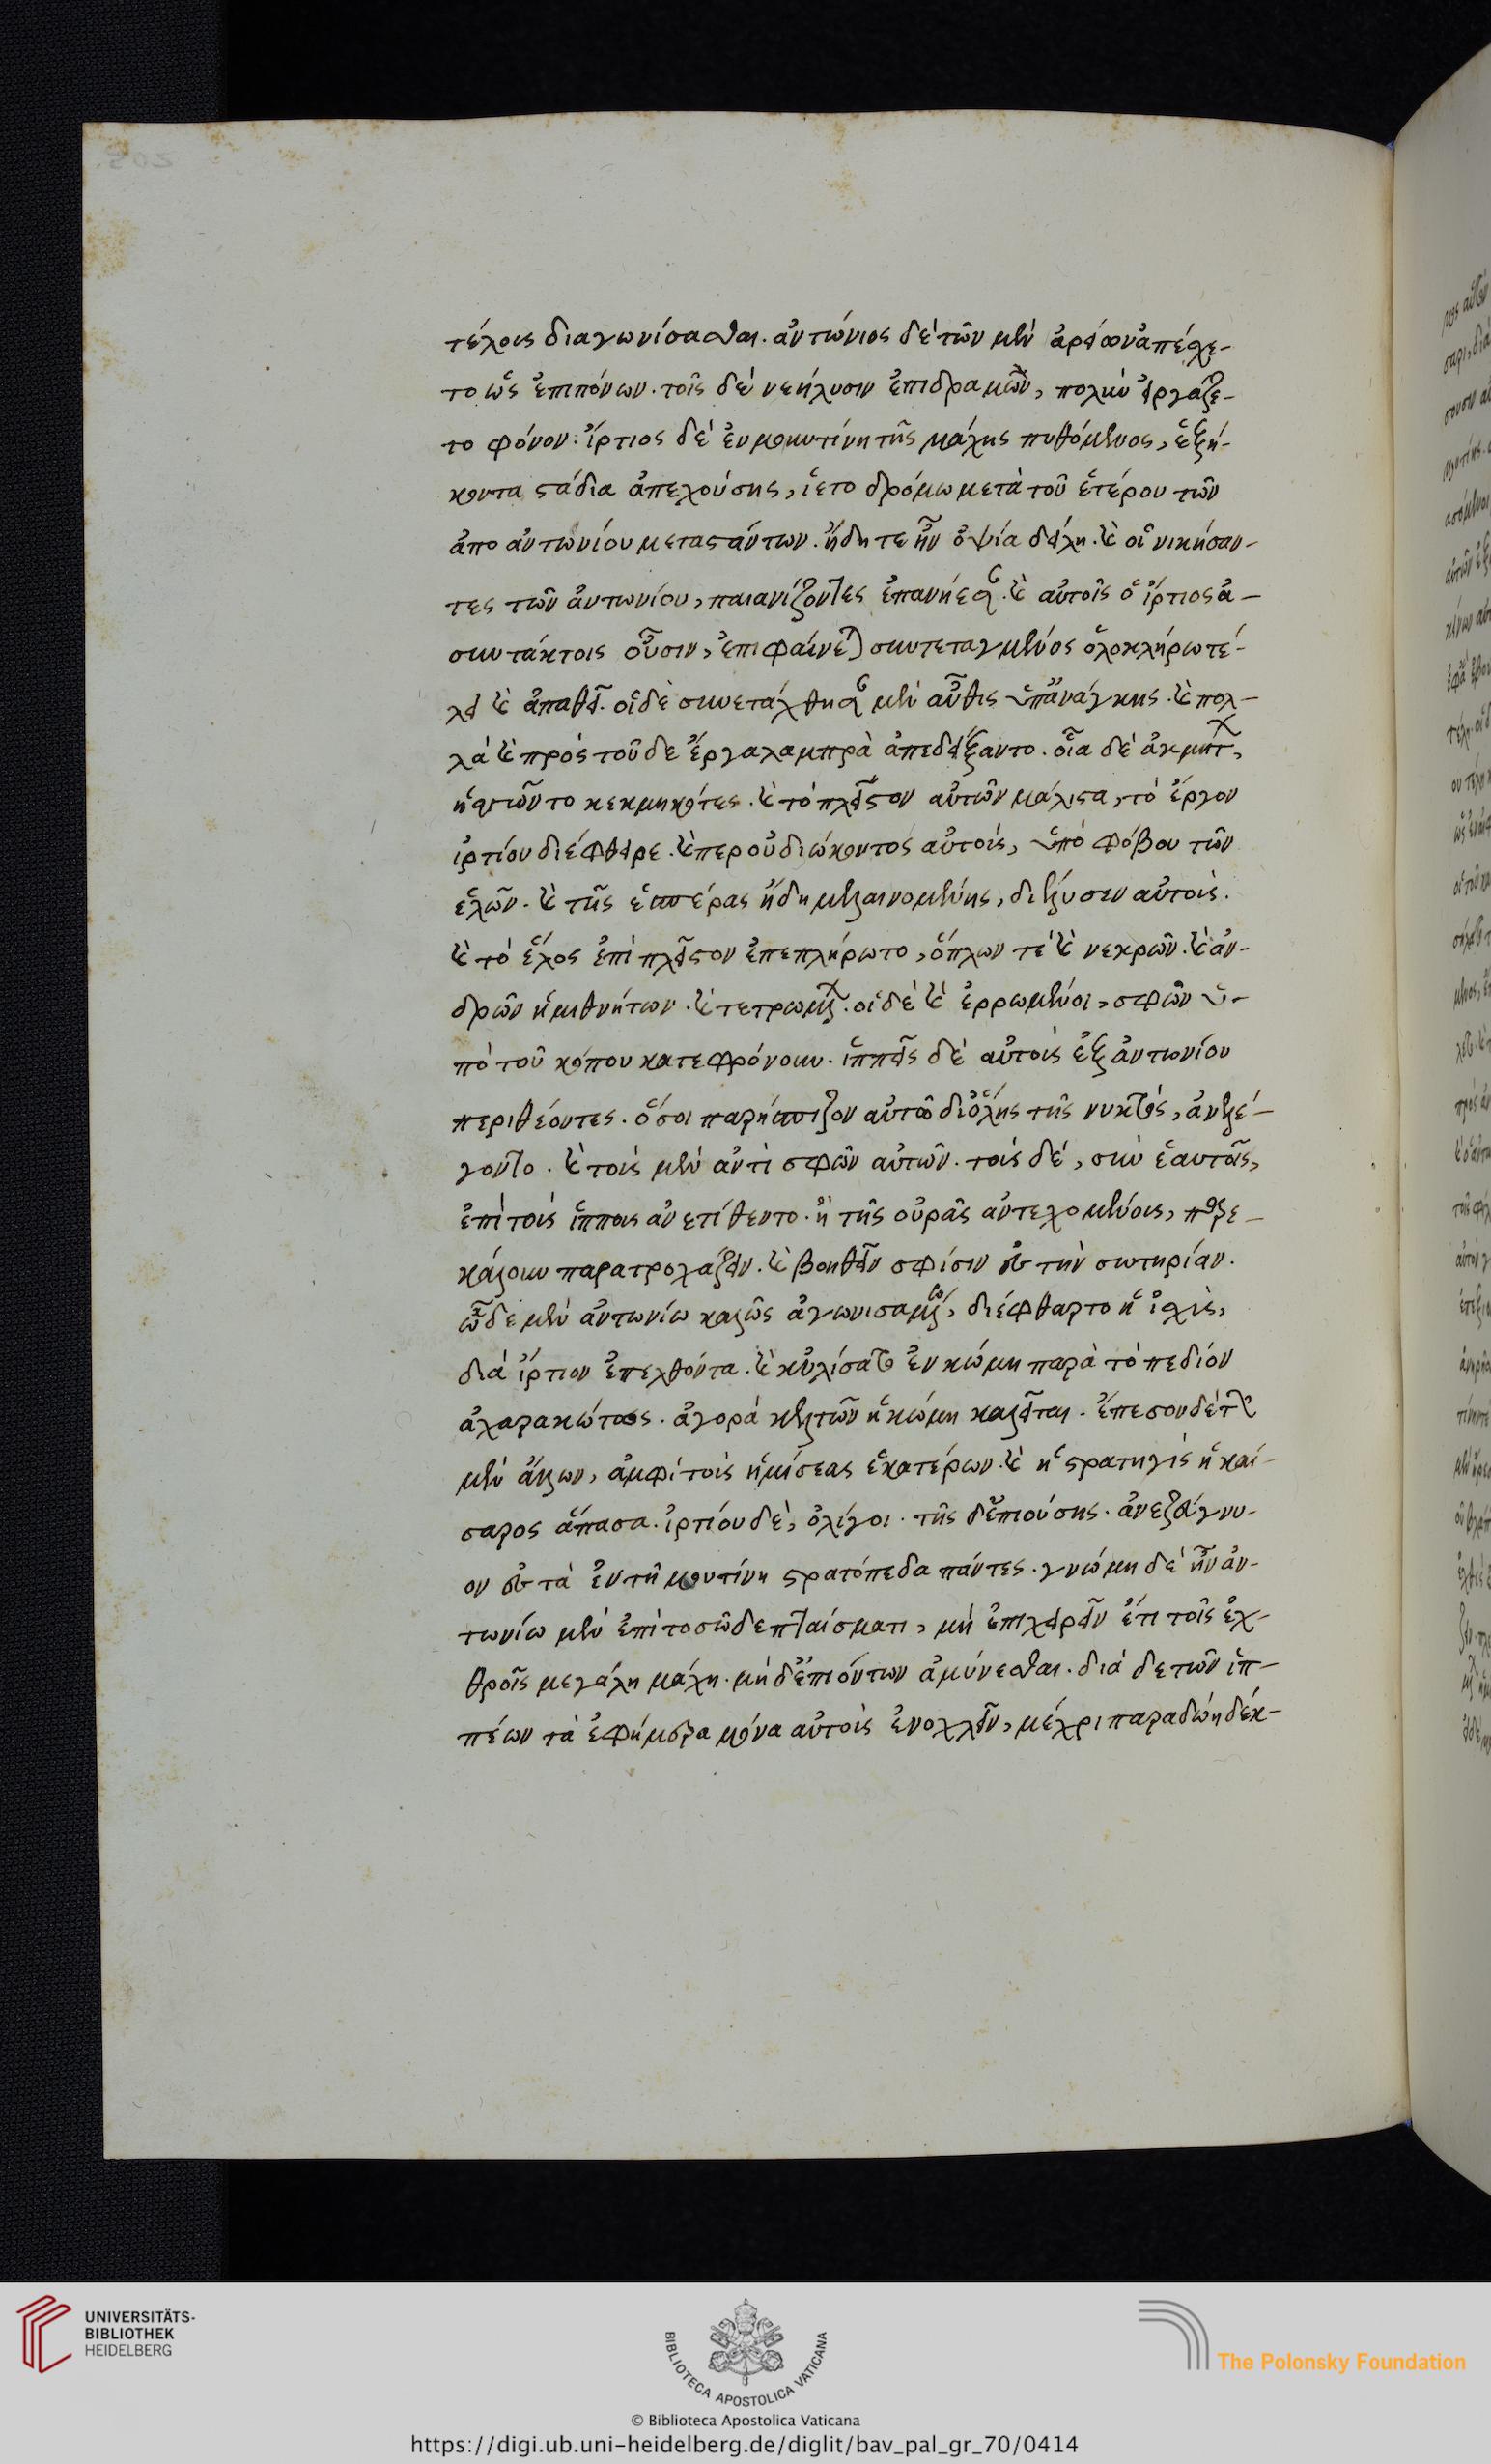 τέλους διαγωνίσασθαι. ἀντώνιος δὲ τῶν μὲν ἀρείων ἀπέσχε-
το ὡς ἐπιπόνων. τοῖς δὲ νεήλυσιν ἐπιδραμὼν, πολὺν εἰργάζε-
το φόνον. ἵρτιος δὲ ἐν μουτίνη τῆς μάχης πυθόμενος, ἑξή-
κοντα στάδια ἀπεχούσης, ἵετο δρόμω μετὰ τοῦ ἑτέρου τῶν
ἀπο ἀντωνίου μεταστάντων. ἤδη τε ἦν ὀψία δείλη. καὶ οἱ νικήσαν-
τες τῶν ἀντωνίου, παιανίζοντες ἐπανήεσαν. καὶ αὐτοῖς ὁ ἵρτιος ἀ-
συντάκτοις οὖσιν, ἐπιφαίνεται συντεταγμένος ὁλοκλήρω τέ-
λει καὶ ἀπαθεῖ. οἱ δὲ συνετάχθησαν μὲν αὖθις ὑπ' ἀνάγκης. καὶ πολ-
λὰ καὶ πρὸς τοῦδε ἔργα λαμπρὰ ἀπεδείξαντο. οἷα δὲ ἀκμητ,
ἡσσῶντο κεκμηκότες. καὶ τὸ πλεῖστον αὐτῶν μάλιστα, τὸ ἔργον
ἱρτίου διέφθειρε. καίπερ οὐ διώκοντος αὐτοὺς, ὑπὸ φόβου τῶν
ἑλῶν. καὶ τῆς ἑσπέρας ἤδη μελαινομένης, διέλυσεν αὐτούς.
καὶ τὸ ἕλος ἐπὶ πλεῖστον ἐπεπλήρωτο, ὅπλων τὲ καὶ νεκρῶν. καὶ ἀν-
δρῶν ἡμιθνήτων. καὶ τετρωμένων. οἱ δὲ καὶ ἐρρωμένοι, σφῶν ὑ-
πὸ τοῦ κόπου κατεφρόνουν. ἱππεῖς δὲ αὐτοὺς ἐξ ἀντωνίου
περιθέοντες. ὅσοι παρήσπιζον αὐτῶ δι' ὅλης τῆς νυκτὸς, ἀνελέ-
γοντο. καὶ τοὺς μὲν ἀντὶ σφῶν αὐτῶν. τοὺς δὲ, σὺν ἑαυτοῖς,
ἐπὶ τοὺς ἵππους ἀνετίθεντο. ἢ τῆς οὐρᾶς ἀντεχομένους, παρε-
κάλουν παρατροχάζειν. καὶ βοηθεῖν σφίσιν ἐς τὴν σωτηρίαν.
ὧδε μὲν ἀντωνίω καλῶς ἀγωνισαμένω, διέφθαρτο ἡ ἰσχὺς,
διὰ ἵρτιον ἐπελθόντα. καὶ ηὐλίσατο ἐν κώμη παρὰ τὸ πεδίον
ἀχαρακώτως. ἀγορὰ κελτῶν ἡ κώμη καλεῖται. ἔπεσον δὲ τῶν
μὲν ἄλλων, ἀμφὶ τοὺς ἡμίσεας ἑκατέρων. καὶ ἡ στρατηγὶς ἡ καί-
σαρος ἅπασα. ἱρτίου δὲ, ὀλίγοι. τῆς δ' ἐπιούσης. ἀνεζεύγνυ-
ον ἐς τὰ ἐν τῆ μουτίνη στρατόπεδα πάντες. γνώμη δὲ ἦν ἀν-
τωνίω μὲν ἐπὶ τοσῶδε πταίσματι, μὴ ἐπιχειρεῖν ἔτι τοῖς ἐχ-
θροῖς μεγάλη μάχη. μὴ δ' ἐπιόντων ἀμύνεσθαι. διὰ δε τῶν ἱπ-
πέων τὰ ἐφήμερα μόνα αὐτοὺς ἐνοχλεῖν, μέχρι παραδώη δέκ-
UNIVERSITÄTS-
BIBLIOTHEK
HEIDELBERG
BIBLIOTECA APOSTOLICA VATICANA
The Polonsky Foundation
© Biblioteca Apostolica Vaticana
https://digi.ub.uni-heidelberg.de/diglit/bav_pal_gr_70/0414